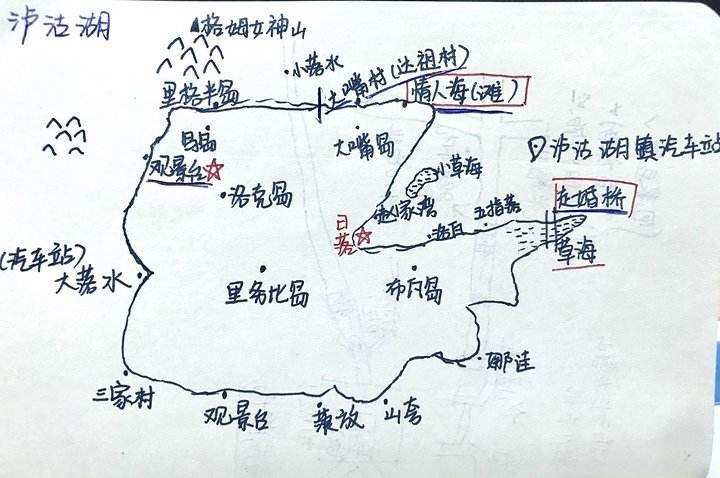 泸沽湖
格姆女神山
小落水
里格半岛
大嘴村(达祖村)
情人海(滩)
鸟岛
观景台
大嘴岛
泸沽湖镇汽车站
小草海
洛克岛
走婚桥
赵家湾
五指落
日落
洛白
草海
(汽车站)
大落水
里务比岛
布瓦岛
娜洼
三家村
观景台
蒗放
山垮